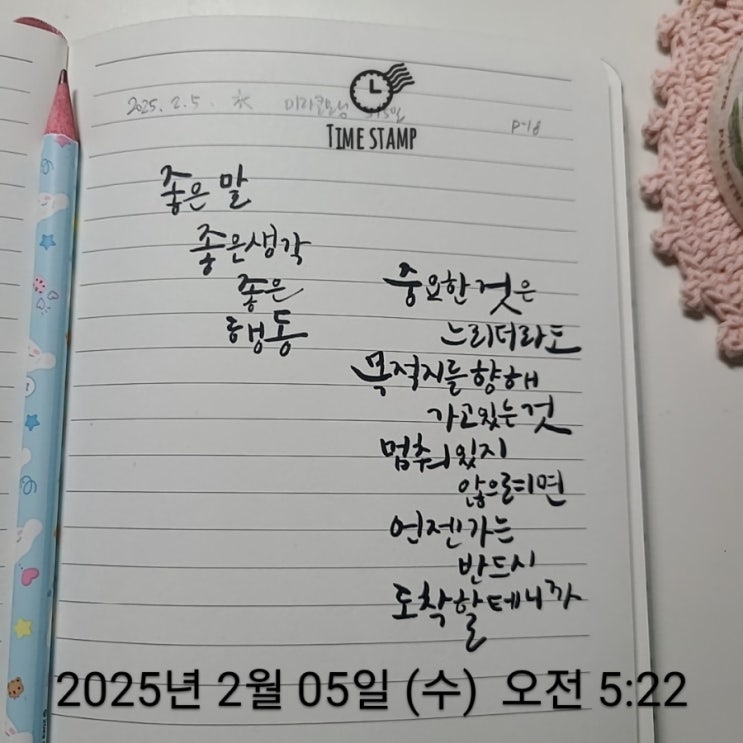 2025. 2. 5. 水 미라클모닝 515일
P-18
TIME STAMP
좋은 말
좋은생각
좋은
행동
중요한 것은
느리더라도
목적지를 향해
가고있는 것
멈춰있지
않으려면
언젠가는
반드시
도착할테니까
2025년 2월 05일 (수) 오전 5:22